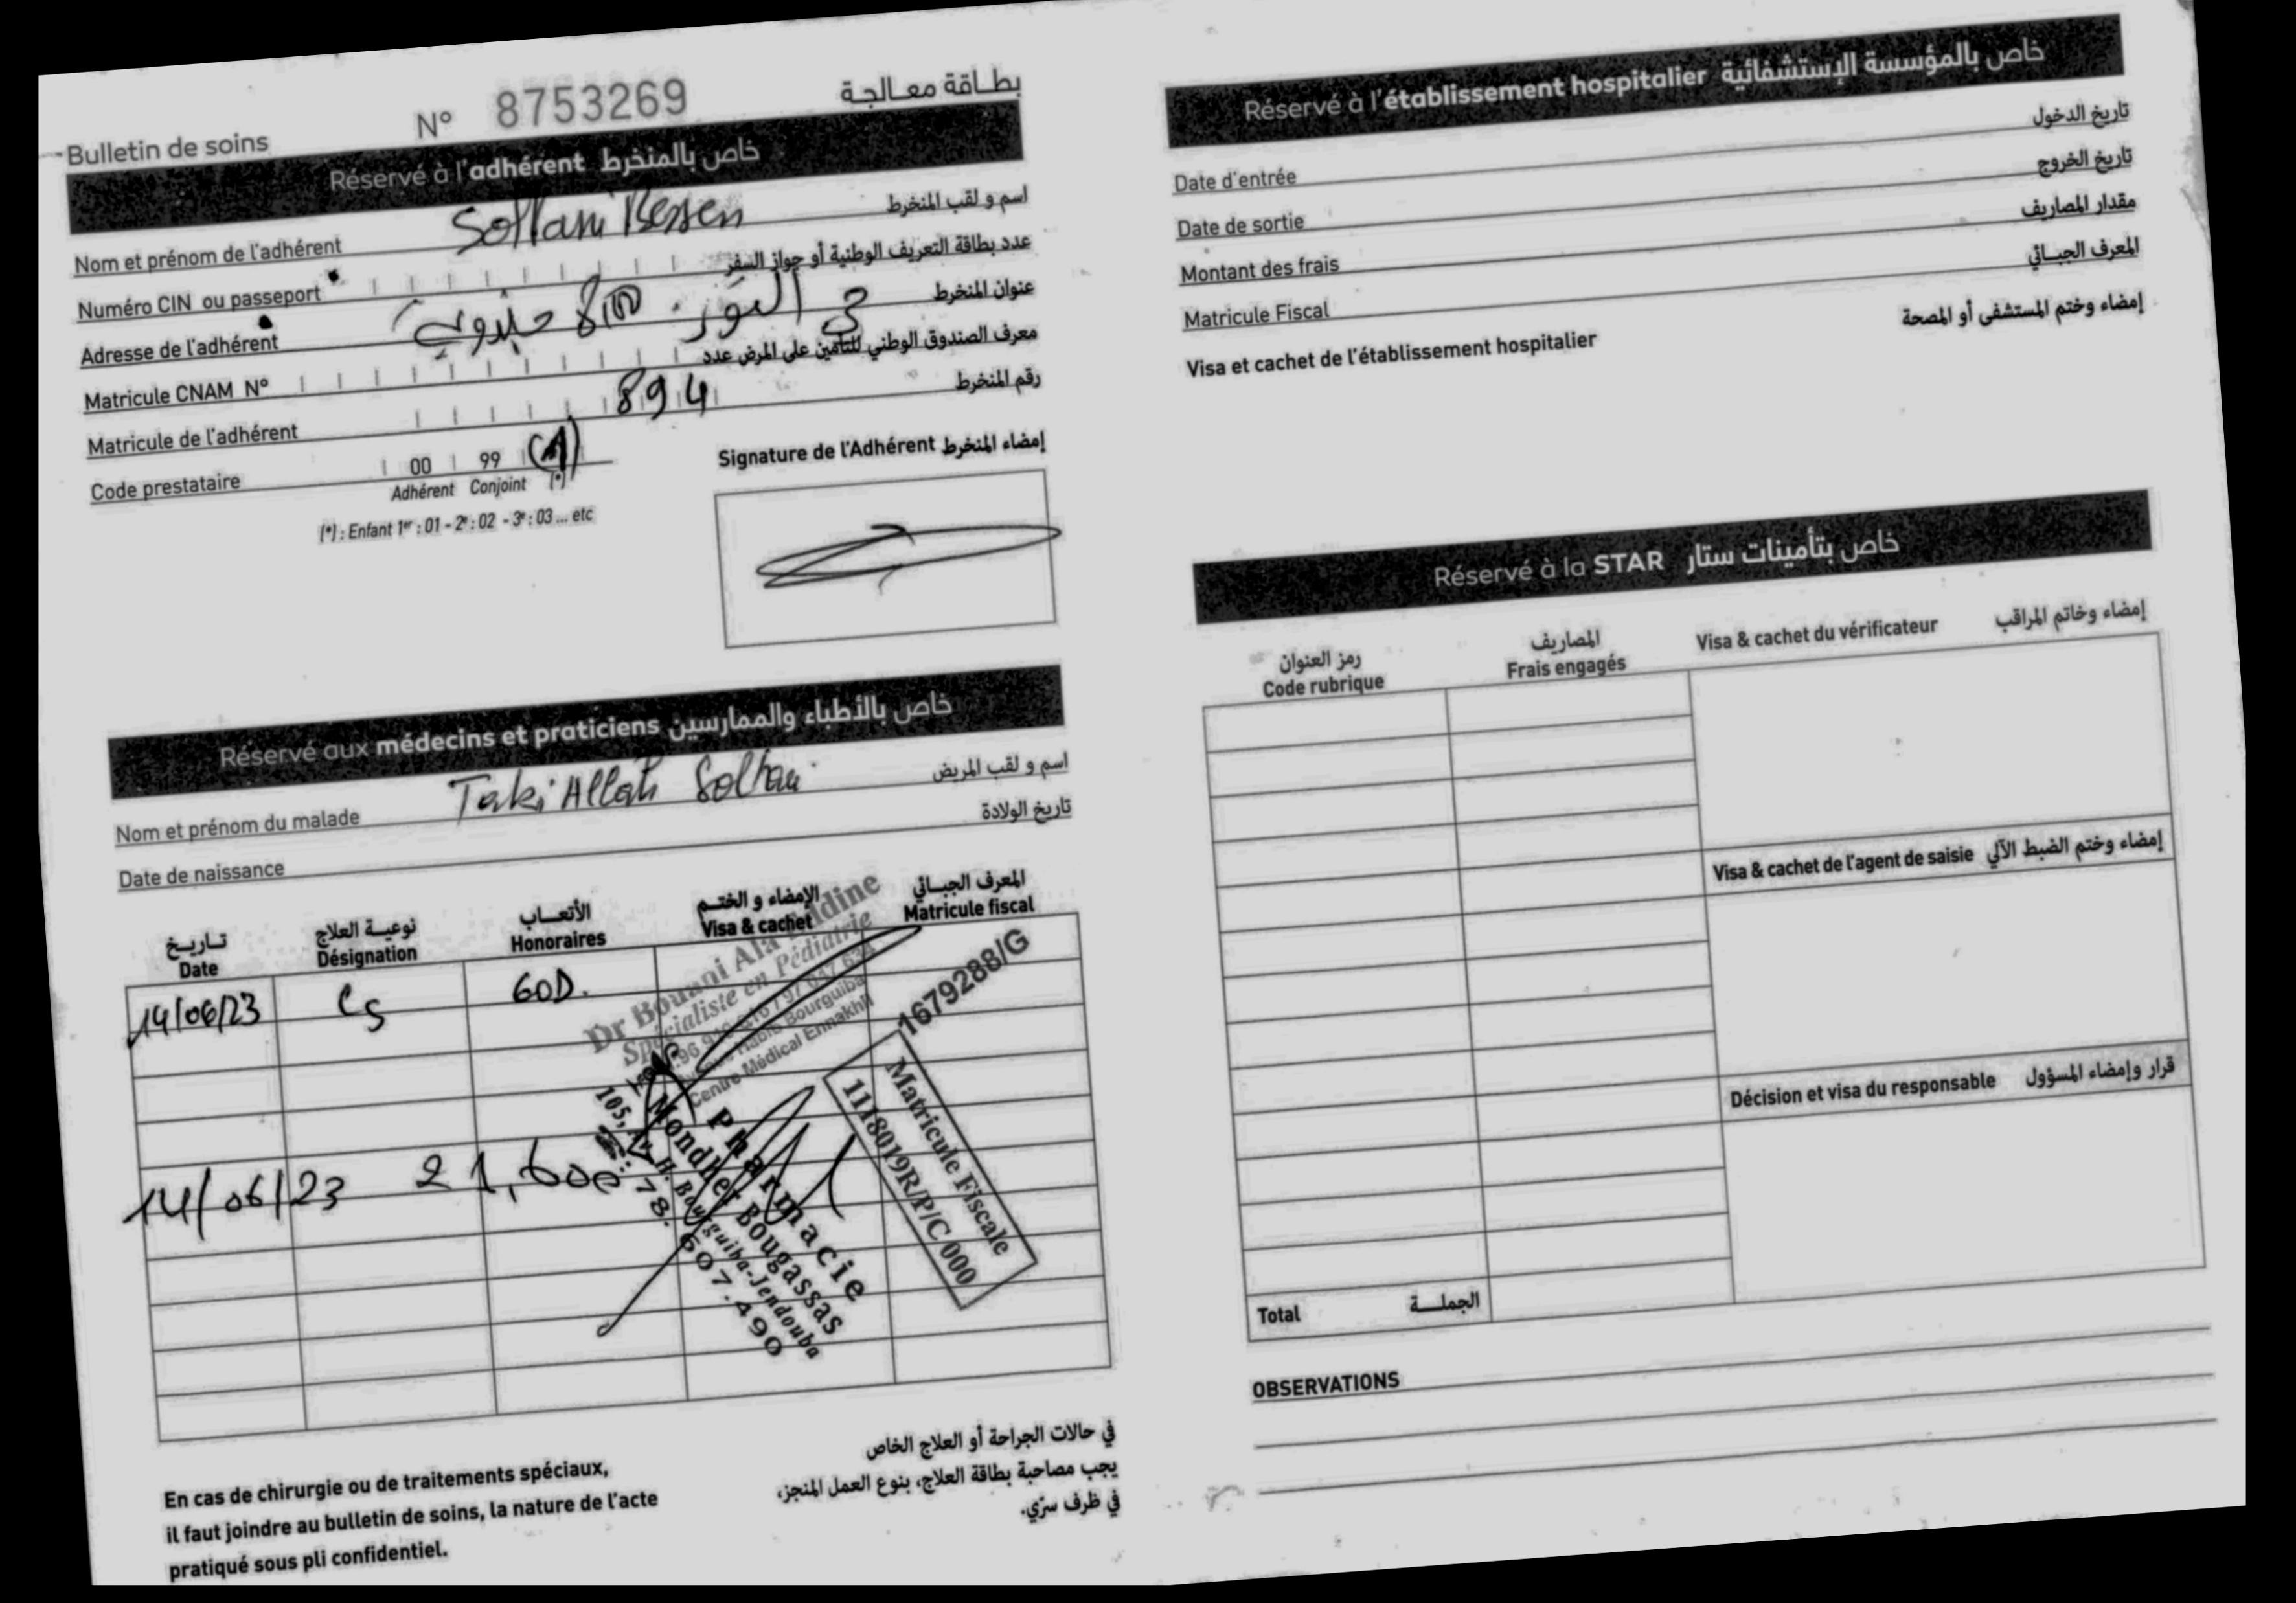 Bulletin de soins N° 8753269 بطاقة معالجة
Réservé à l'adhérent خاص بالمنخرط
Nom et prénom de l'adhérent Soltani Bessen اسم و لقب المنخرط
Numéro CIN ou passeport عدد بطاقة التعريف الوطنية أو جواز السفر
Adresse de l'adhérent حي النور عنوان المنخرط
Matricule CNAM N° معرف الصندوق الوطني للتأمين على المرض عدد
Matricule de l'adhérent 894 رقم المنخرط
Code prestataire 00 99
Adhérent Conjoint (*)
(*) : Enfant 1er : 01 - 2e : 02 - 3e : 03 ... etc
Signature de l'Adhérent إمضاء المنخرط
Réservé aux médecins et praticiens خاص بالأطباء والممارسين
Nom et prénom du malade Taki Allah Soltani اسم و لقب المريض
Date de naissance تاريخ الولادة
تاريخ نوعية العلاج الأتعاب الإمضاء و الختم المعرف الجبائي
Date Désignation Honoraires Visa & cachet Matricule fiscal
14/06/23 Cs 60D.
Dr Bouani Ala
Spécialiste en Pédiatrie
Habib Bourguiba
Centre Médical Ennakhil
1679288/G
14/06/23 21,600
Pharmacie
Mondher Bougassas
105, Av. H. Bourguiba-Jendouba
78.607.490
Matricule Fiscale
1118019R/P/C000
En cas de chirurgie ou de traitements spéciaux,
il faut joindre au bulletin de soins, la nature de l'acte
pratiqué sous pli confidentiel.
في حالات الجراحة أو العلاج الخاص
يجب مصاحبة بطاقة العلاج، بنوع العمل المنجز،
في ظرف سرّي.
Réservé à l'établissement hospitalier خاص بالمؤسسة الإستشفائية
Date d'entrée تاريخ الدخول
Date de sortie تاريخ الخروج
Montant des frais مقدار المصاريف
Matricule Fiscal المعرف الجبائي
Visa et cachet de l'établissement hospitalier إمضاء وختم المستشفى أو المصحة
Réservé à la STAR خاص بتأمينات ستار
رمز العنوان المصاريف
Code rubrique Frais engagés Visa & cachet du vérificateur إمضاء وخاتم المراقب
Visa & cachet de l'agent de saisie إمضاء وختم الضبط الآلي
Décision et visa du responsable قرار وإمضاء المسؤول
Total الجملة
OBSERVATIONS